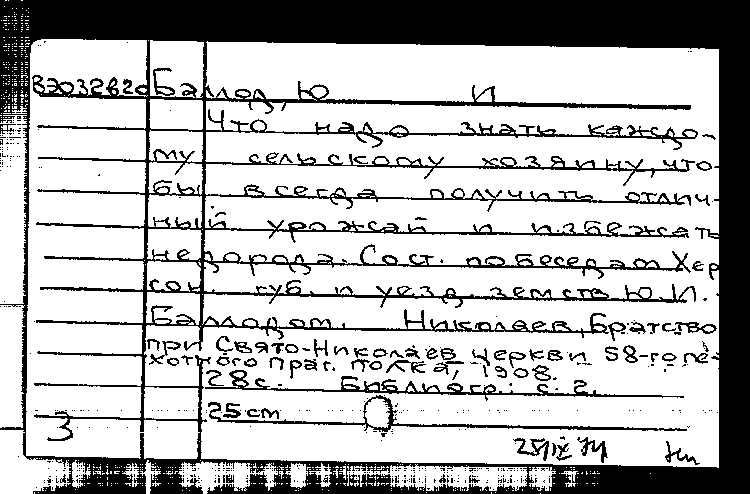 Баллод, Ю И
Что надо знать каждо-
му сельскому хозяину, что-
бы всегда получить отлич-
ный урожай и избежать
недорода. Сост. по беседам Хер
сон. губ. и уезд. земств Ю.И.
Баллодом. Николаев, Братство
при Свято-Николаев церкви 58-го пе-
хотного Праг. полка, 1908.
28 с. Библиогр.: с. 2.
25 см
3